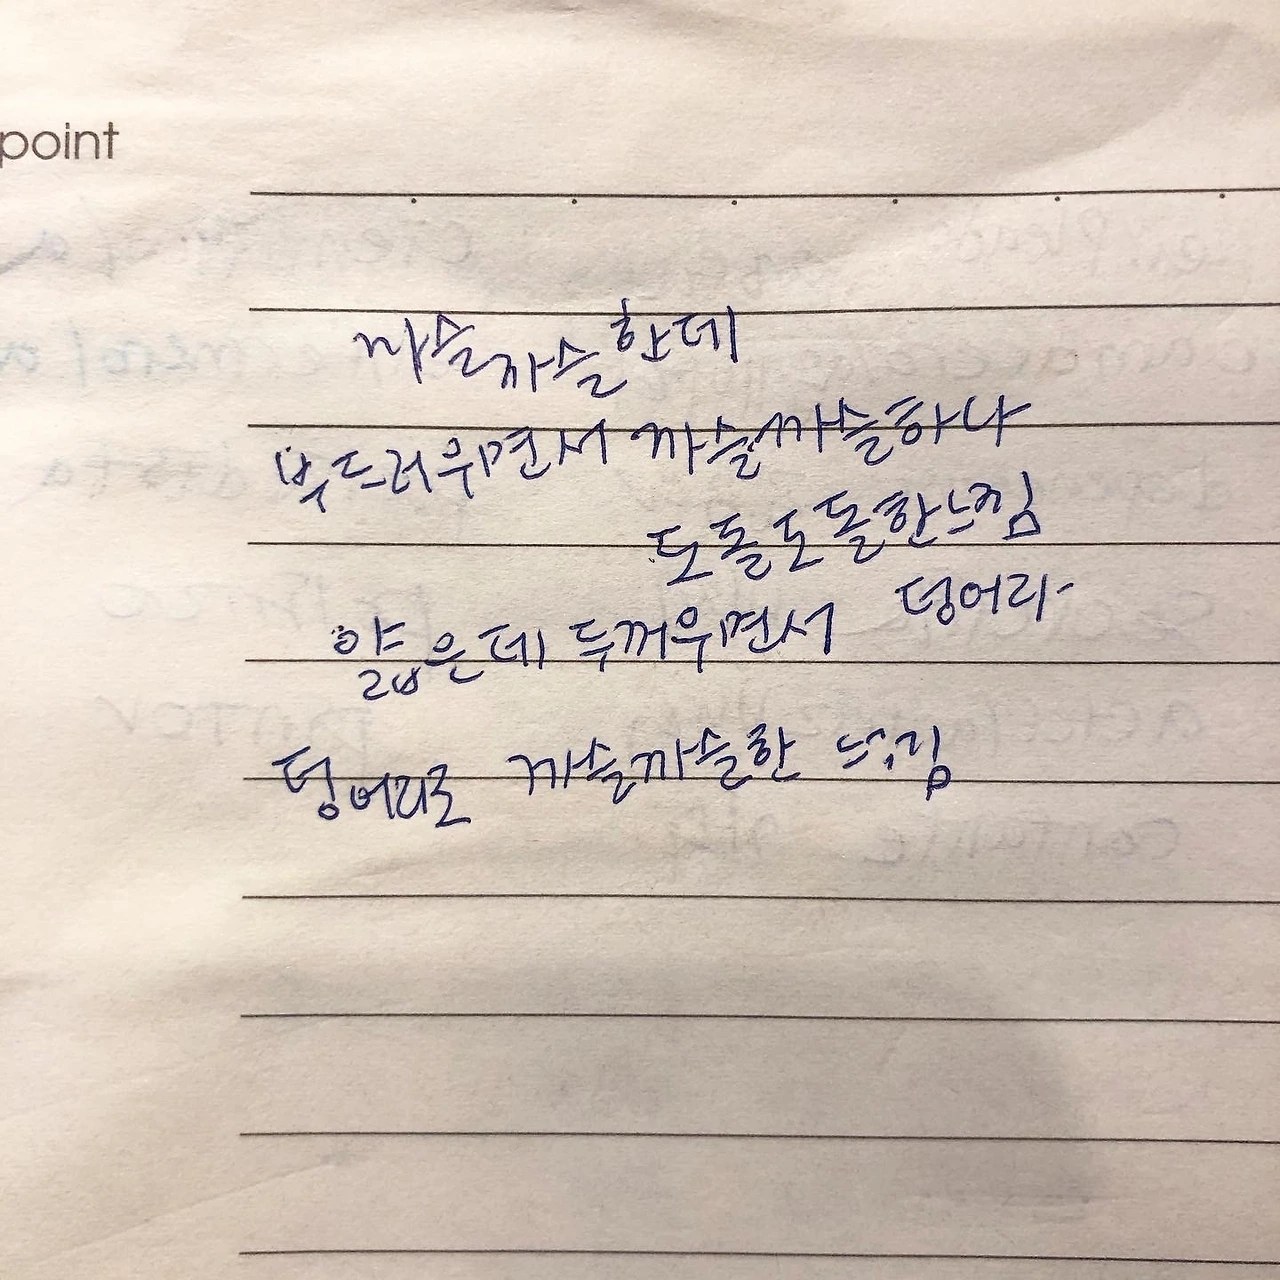 point
까슬까슬한데
부드러우면서 까슬까슬하나
도돌도돌한느낌
얇은데 두꺼우면서 덩어리
덩어리로 까슬까슬한 느낌